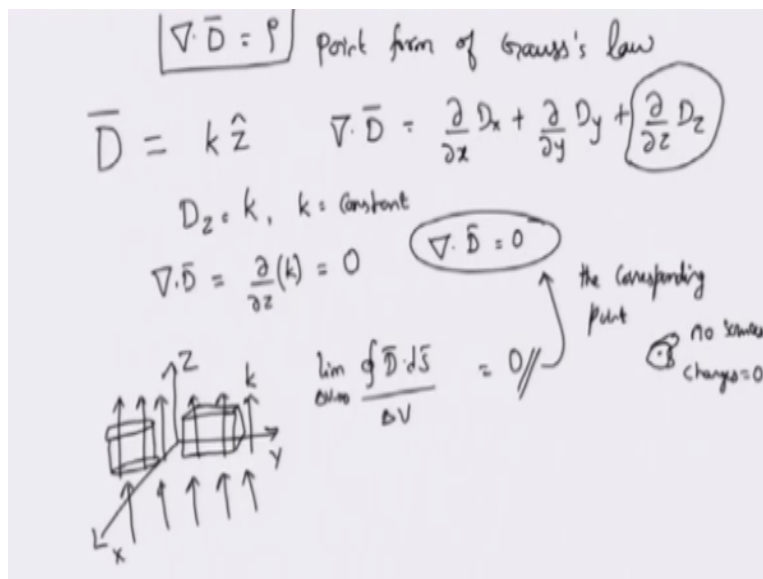 ∇·D̄ = ρ point form of Gauss's law
D̄ = k ẑ ∇·D̄ = ∂/∂x Dx + ∂/∂y Dy + ∂/∂z Dz
Dz = k, k = Constant
∇·D̄ = ∂/∂z (k) = 0 ∇·D̄ = 0
the corresponding
point
no sources
charges=0
lim ΔV→0 ∮ D̄·ds̄ / ΔV = 0//
Z
k
Y
X